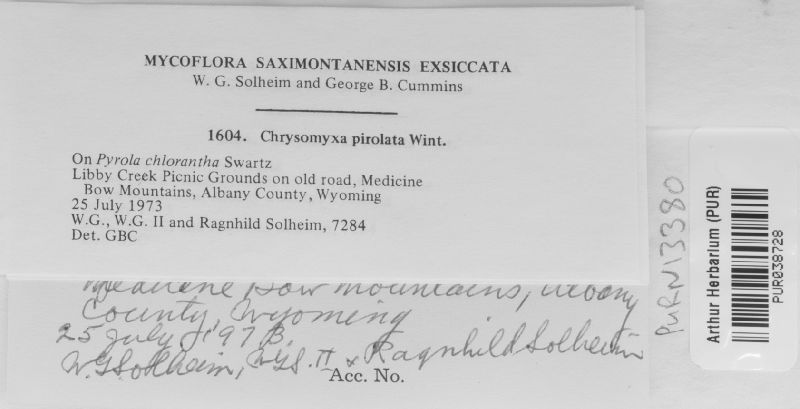 MYCOFLORA SAXIMONTANENSIS EXSICCATA
W. G. Solheim and George B. Cummins
1604. Chrysomyxa pirolata Wint.
On Pyrola chlorantha Swartz
Libby Creek Picnic Grounds on old road, Medicine
Bow Mountains, Albany County, Wyoming
25 July 1973
W.G., W.G. II and Ragnhild Solheim, 7284
Det. GBC
Medicine Bow Mountains, Albany
County, Wyoming
25 July 1973.
W.G. Solheim, WGS. II & Ragnhild Solheim
Acc. No.
PURN13380
Arthur Herbarium (PUR)
PUR038728